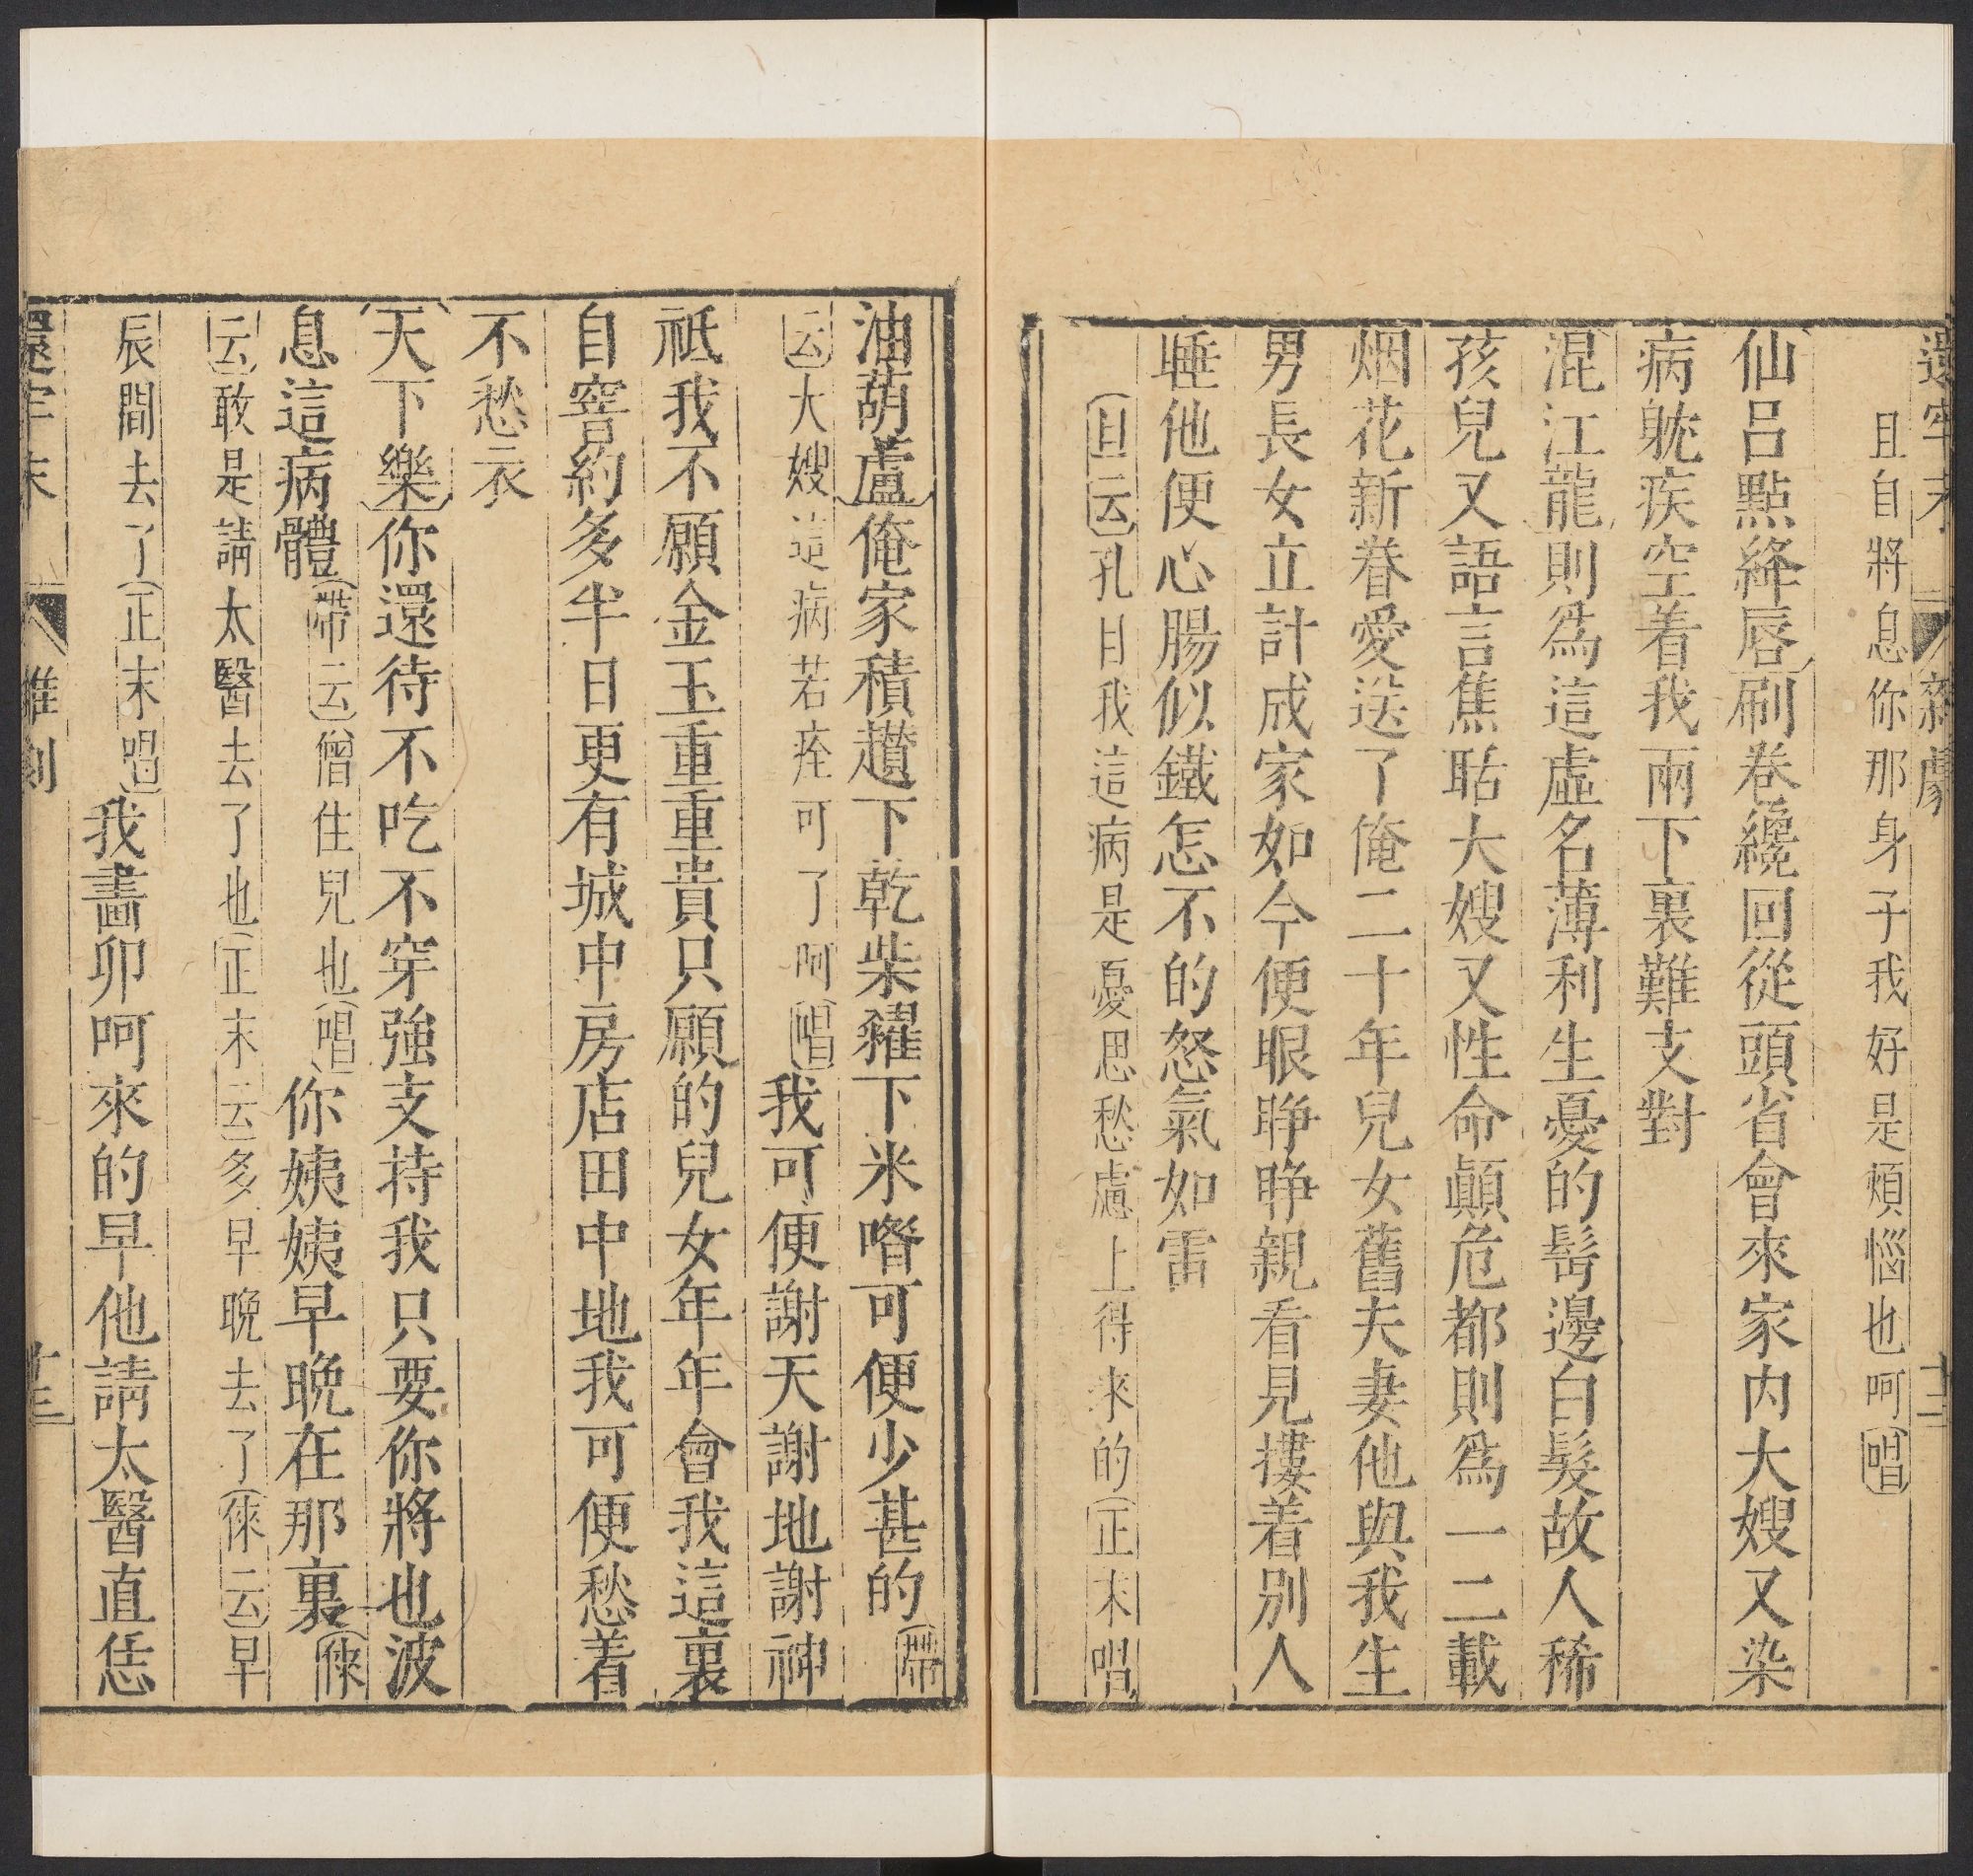 還牢末 雜劇 十二
且自將息你那身子我好是煩惱也呵(唱)
仙呂點絳唇刷卷纔回從頭省會來家内大嫂又染
病躭疾空着我兩下裏難支對
混江龍則爲這虛名薄利生憂的髩邊白髮故人稀
孩兒又語言焦聒大嫂又性命顚危都則爲一二載
烟花新眷愛送了俺二十年兒女舊夫妻他與我生
男長女立計成家如今便眼睁睁親看見摟着別人
睡他便心腸似鐵怎不的怒氣如雷
(旦云)孔目我這病是憂思愁慮上得來的(正末唱)
油葫蘆俺家積趲下乾柴糴下米喒可便少甚的(帶
云)大嫂這病若痊可了呵(唱)我可便謝天謝地謝神
祗我不願金玉重重貴只願的兒女年年會我這裏
自窨約多半日更有城中房店田中地我可便愁着
不愁衣
天下樂你還待不吃不穿強支持我只要你將也波
息這病體(帶云)僧住兒也(唱)你姨姨早晚在那裏(倈
云)敢是請太醫去了也(正末云)多早晚去了(倈云)早
辰間去了(正末唱)我畵卯呵來的早他請太醫直恁
還牢末 雜劇 十三